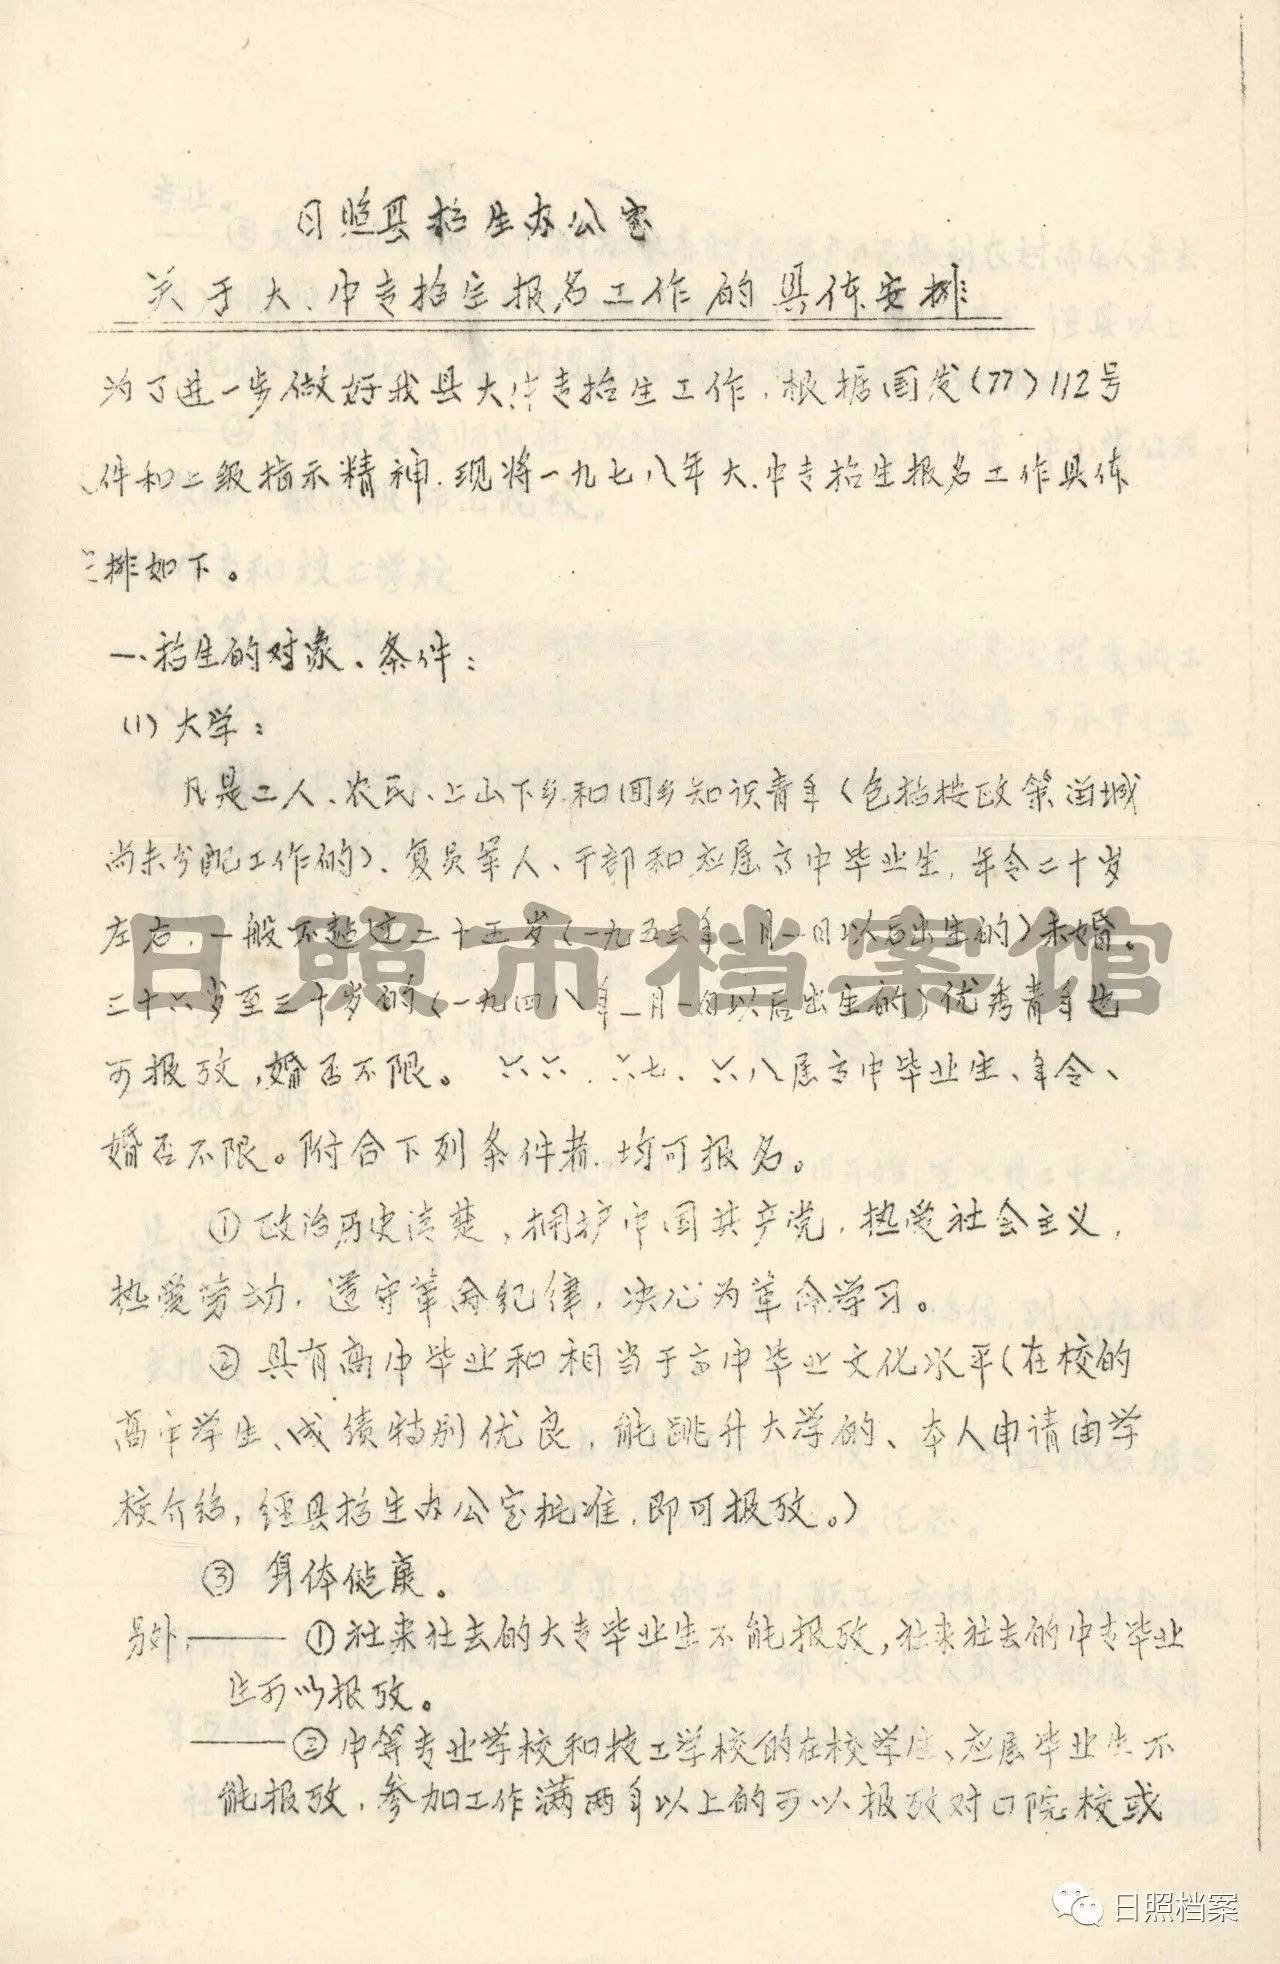 日照县招生办公室
关于大、中专招生报名工作的具体安排
为了进一步做好我县大、中专招生工作，根据国发(77)112号
件和上级指示精神，现将一九七八年大、中专招生报名工作具体
排如下。
一、招生的对象、条件：
(1)大学：
凡是工人、农民、上山下乡和回乡知识青年(包括按政策留城
尚未分配工作的)、复员军人、干部和应届高中毕业生，年令二十岁
左右，一般不超过二十五岁(一九五三年一月一日以后出生的)未婚。
二十六岁至三十岁的(一九四八年一月一日以后出生的)优秀青年也
可报考，婚否不限。六六、六七、六八届高中毕业生、年令、
婚否不限。附合下列条件者，均可报名。
①政治历史清楚，拥护中国共产党，热爱社会主义，
热爱劳动，遵守革命纪律，决心为革命学习。
②具有高中毕业和相当于高中毕业文化水平(在校的
高中学生、成绩特别优良，能跳升大学的、本人申请由学
校介绍，经县招生办公室批准，即可报考。)
③身体健康。
另外，——①社来社去的大专毕业生不能报考，社来社去的中专毕业
生可以报考。
——②中等专业学校和技工学校的在校学生、应届毕业生不
能报考，参加工作满两年以上的可以报考对口院校或
日照市档案馆
日照档案